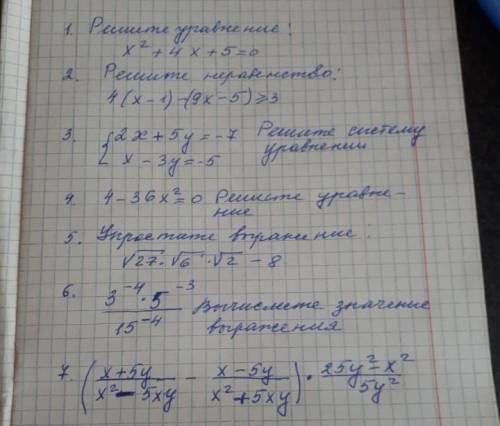 1. Решите уравнение:
x² + 4x + 5 = 0
2. Решите неравенство:
4(x-1)-(9x-5)≥3
3. {2x+5y=-7 Решите систему
x-3y=-5 уравнений
4. 4-36x²=0 Решите уравне-
ние
5. Упростате выражение:
√27·√6·√2-8
6. (3⁻⁴·5⁻³)/15⁻⁴ Вычислете значение
выражения
7. ((x+5y)/(x²-5xy) - (x-5y)/(x²+5xy)) · (25y²-x²)/5y²